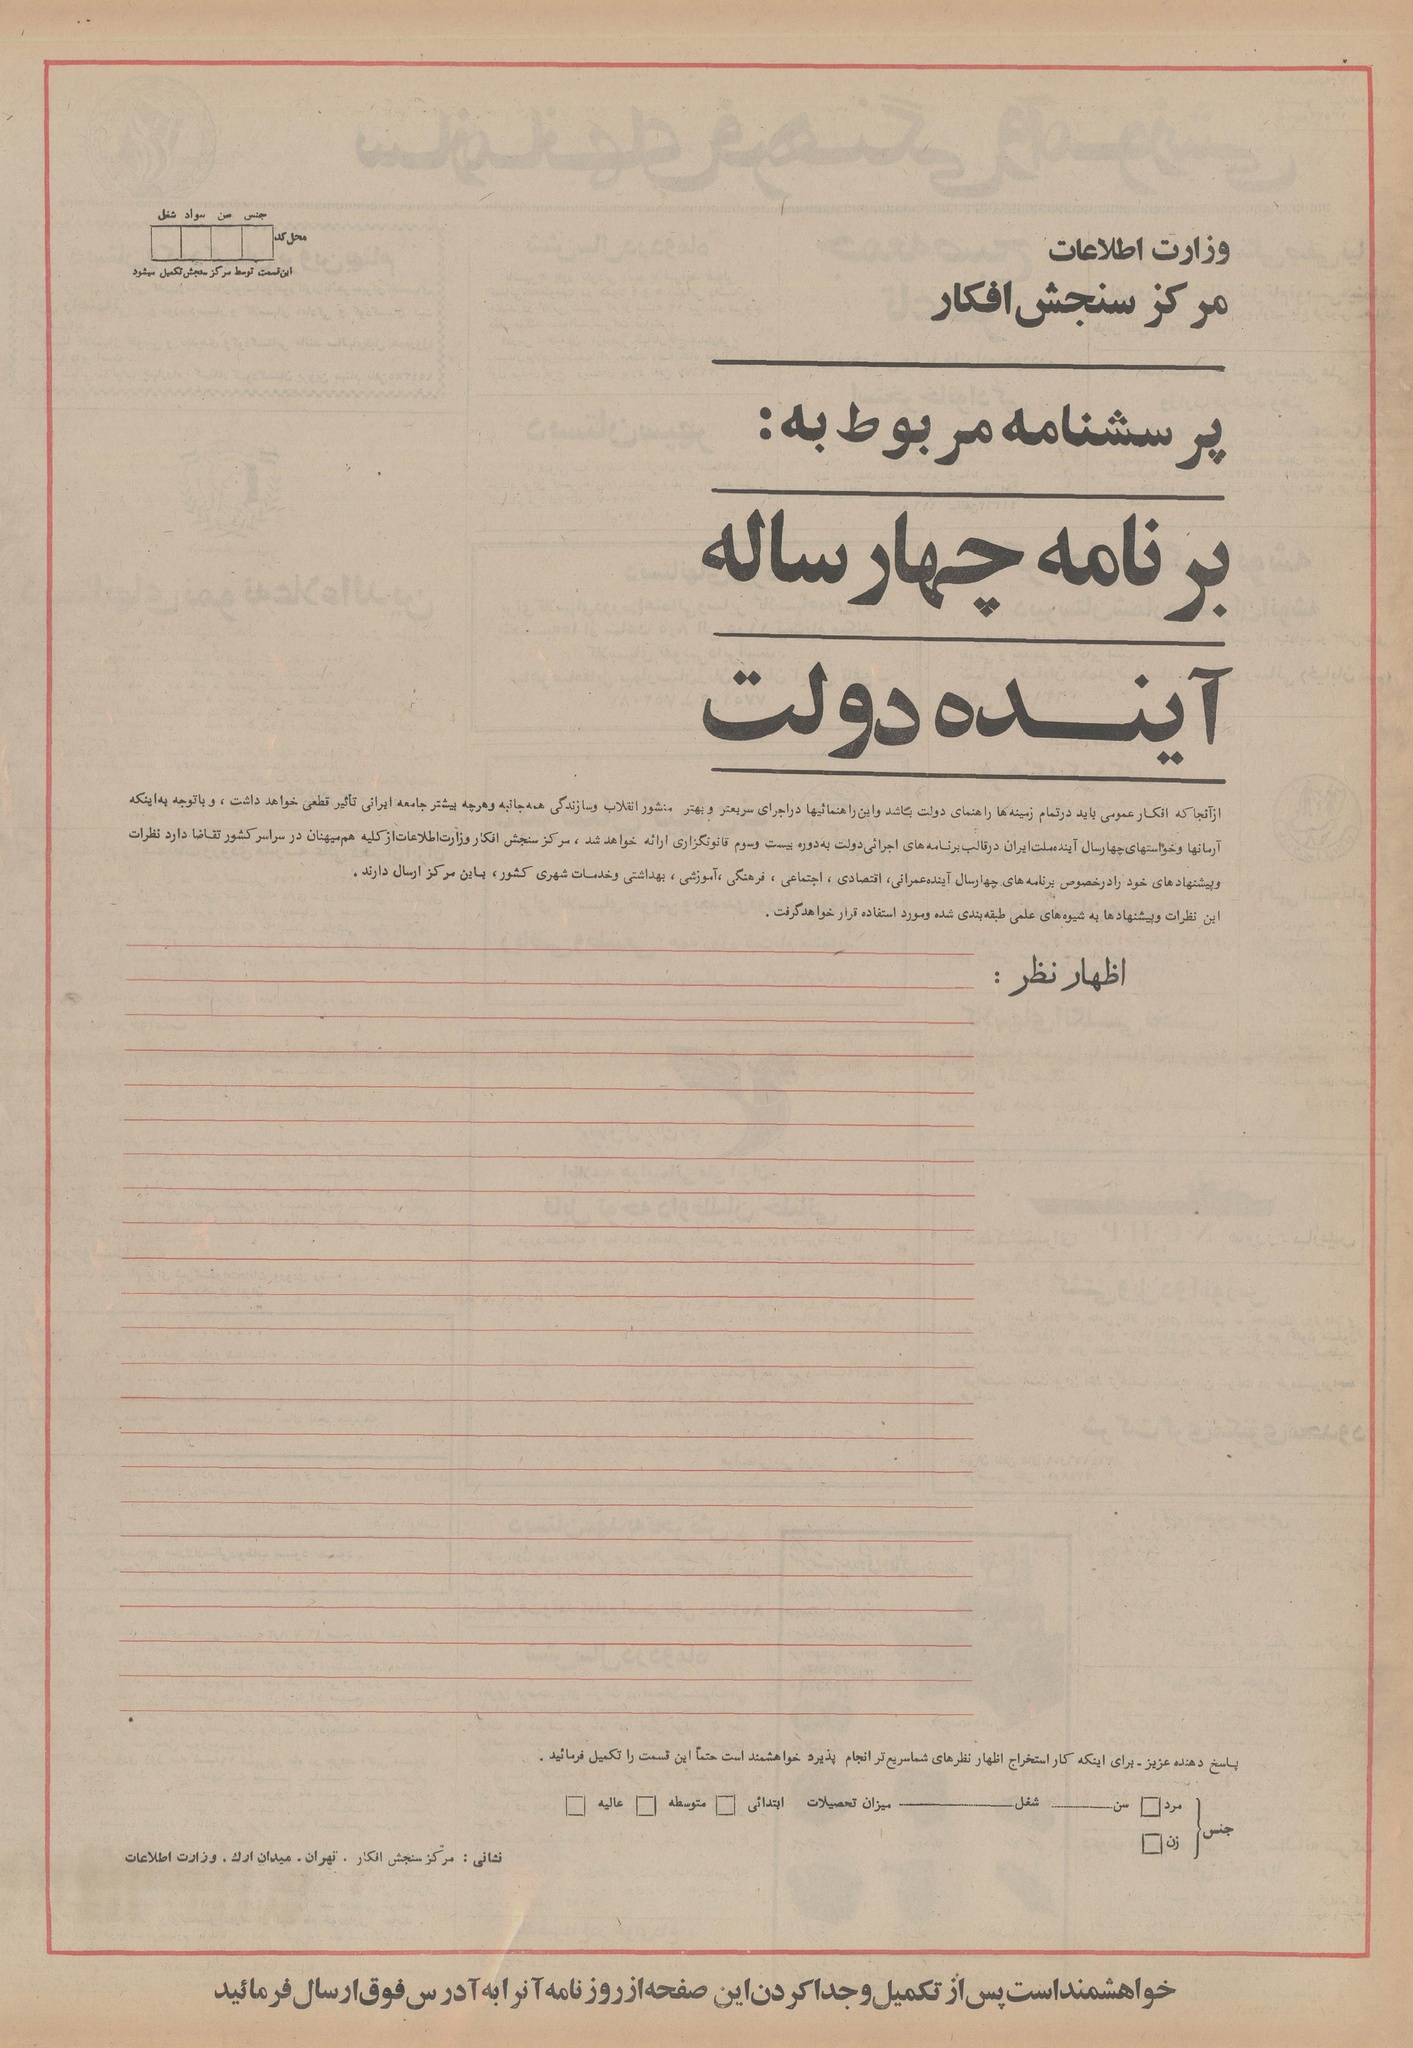 جنس سن سواد شغل
محل کد
این قسمت توسط مرکز سنجش تکمیل میشود
وزارت اطلاعات
مرکز سنجش افکار
پرسشنامه مربوط به:
برنامه چهارساله
آینده دولت
ازآنجا که افکار عمومی باید درتمام زمینه‌ها راهنمای دولت باشد واین راهنمائیها دراجرای سریعتر و بهتر منشور انقلاب وسازندگی همه‌جانبه وهرچه بیشتر جامعه ایرانی تأثیر قطعی خواهد داشت ، و باتوجه به‌اینکه
آرمانها وخواستهای‌چهارسال آینده‌ملت‌ایران درقالب‌برنامه‌های اجرائی‌دولت به‌دوره بیست وسوم قانونگزاری ارائه خواهد شد ، مرکز سنجش افکار وزارت‌اطلاعات‌ازکلیه هم‌میهنان در سراسر کشور تقاضا دارد نظرات
وپیشنهادهای خود رادرخصوص برنامه‌های چهارسال آینده‌عمرانی، اقتصادی ، اجتماعی ، فرهنگی ،آموزشی ، بهداشتی وخدمات شهری کشور ، باین مرکز ارسال دارند .
این نظرات وپیشنهادها به شیوه‌های علمی طبقه‌بندی شده ومورد استفاده قرار خواهدگرفت .
اظهار نظر :
پاسخ دهنده عزیز ـ برای اینکه کار استخراج اظهار نظرهای شماسریع‌تر انجام پذیرد خواهشمند است حتماً این قسمت را تکمیل فرمائید .
جنس { مرد سن شغل میزان تحصیلات ابتدائی متوسطه عالیه
زن
نشانی : مرکز سنجش افکار . تهران . میدان ارك . وزارت اطلاعات
خواهشمنداست‌پس‌از تکمیل‌وجداکردن‌این صفحه‌ازروزنامه‌آنرابه‌آدرس‌فوق‌ارسال‌فرمائید